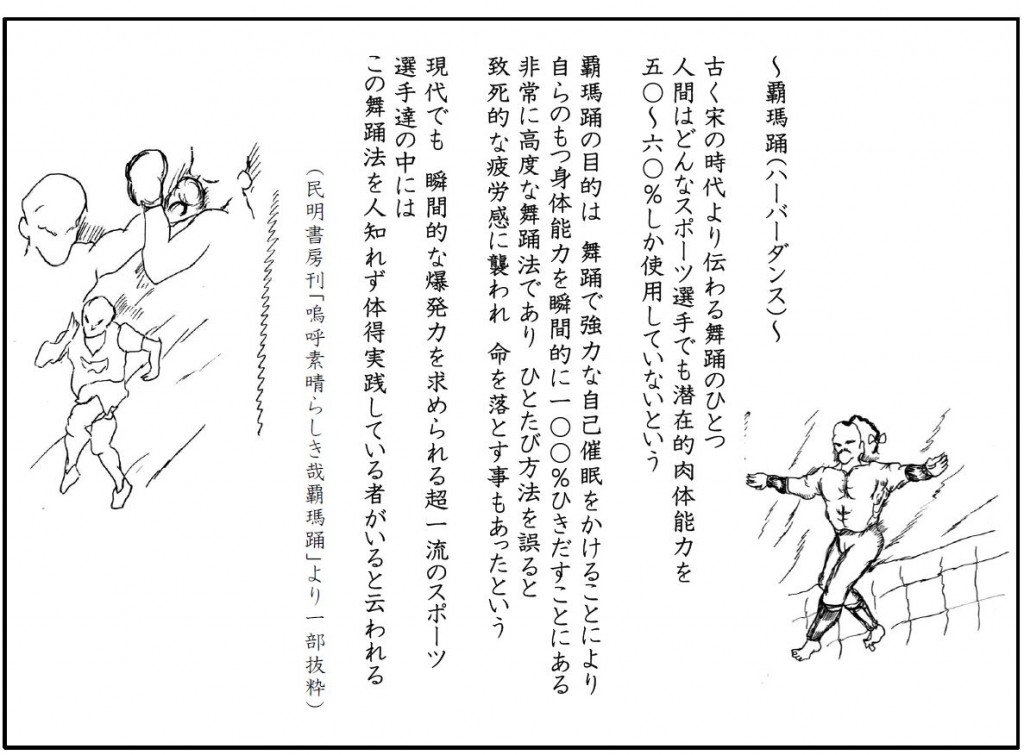 ～覇瑪踊(ハーバーダンス)～
古く宋の時代より伝わる舞踊のひとつ
人間はどんなスポーツ選手でも潜在的肉体能力を
五〇～六〇％しか使用していないという
覇瑪踊の目的は　舞踊で強力な自己催眠をかけることにより
自らのもつ身体能力を瞬間的に一〇〇％ひきだすことにある
非常に高度な舞踊法であり　ひとたび方法を誤ると
致死的な疲労感に襲われ　命を落とす事もあったという
現代でも　瞬間的な爆発力を求められる超一流のスポーツ
選手達の中には
この舞踊法を人知れず体得実践している者がいると云われる
(民明書房刊「嗚呼素晴らしき哉覇瑪踊」より一部抜粋)